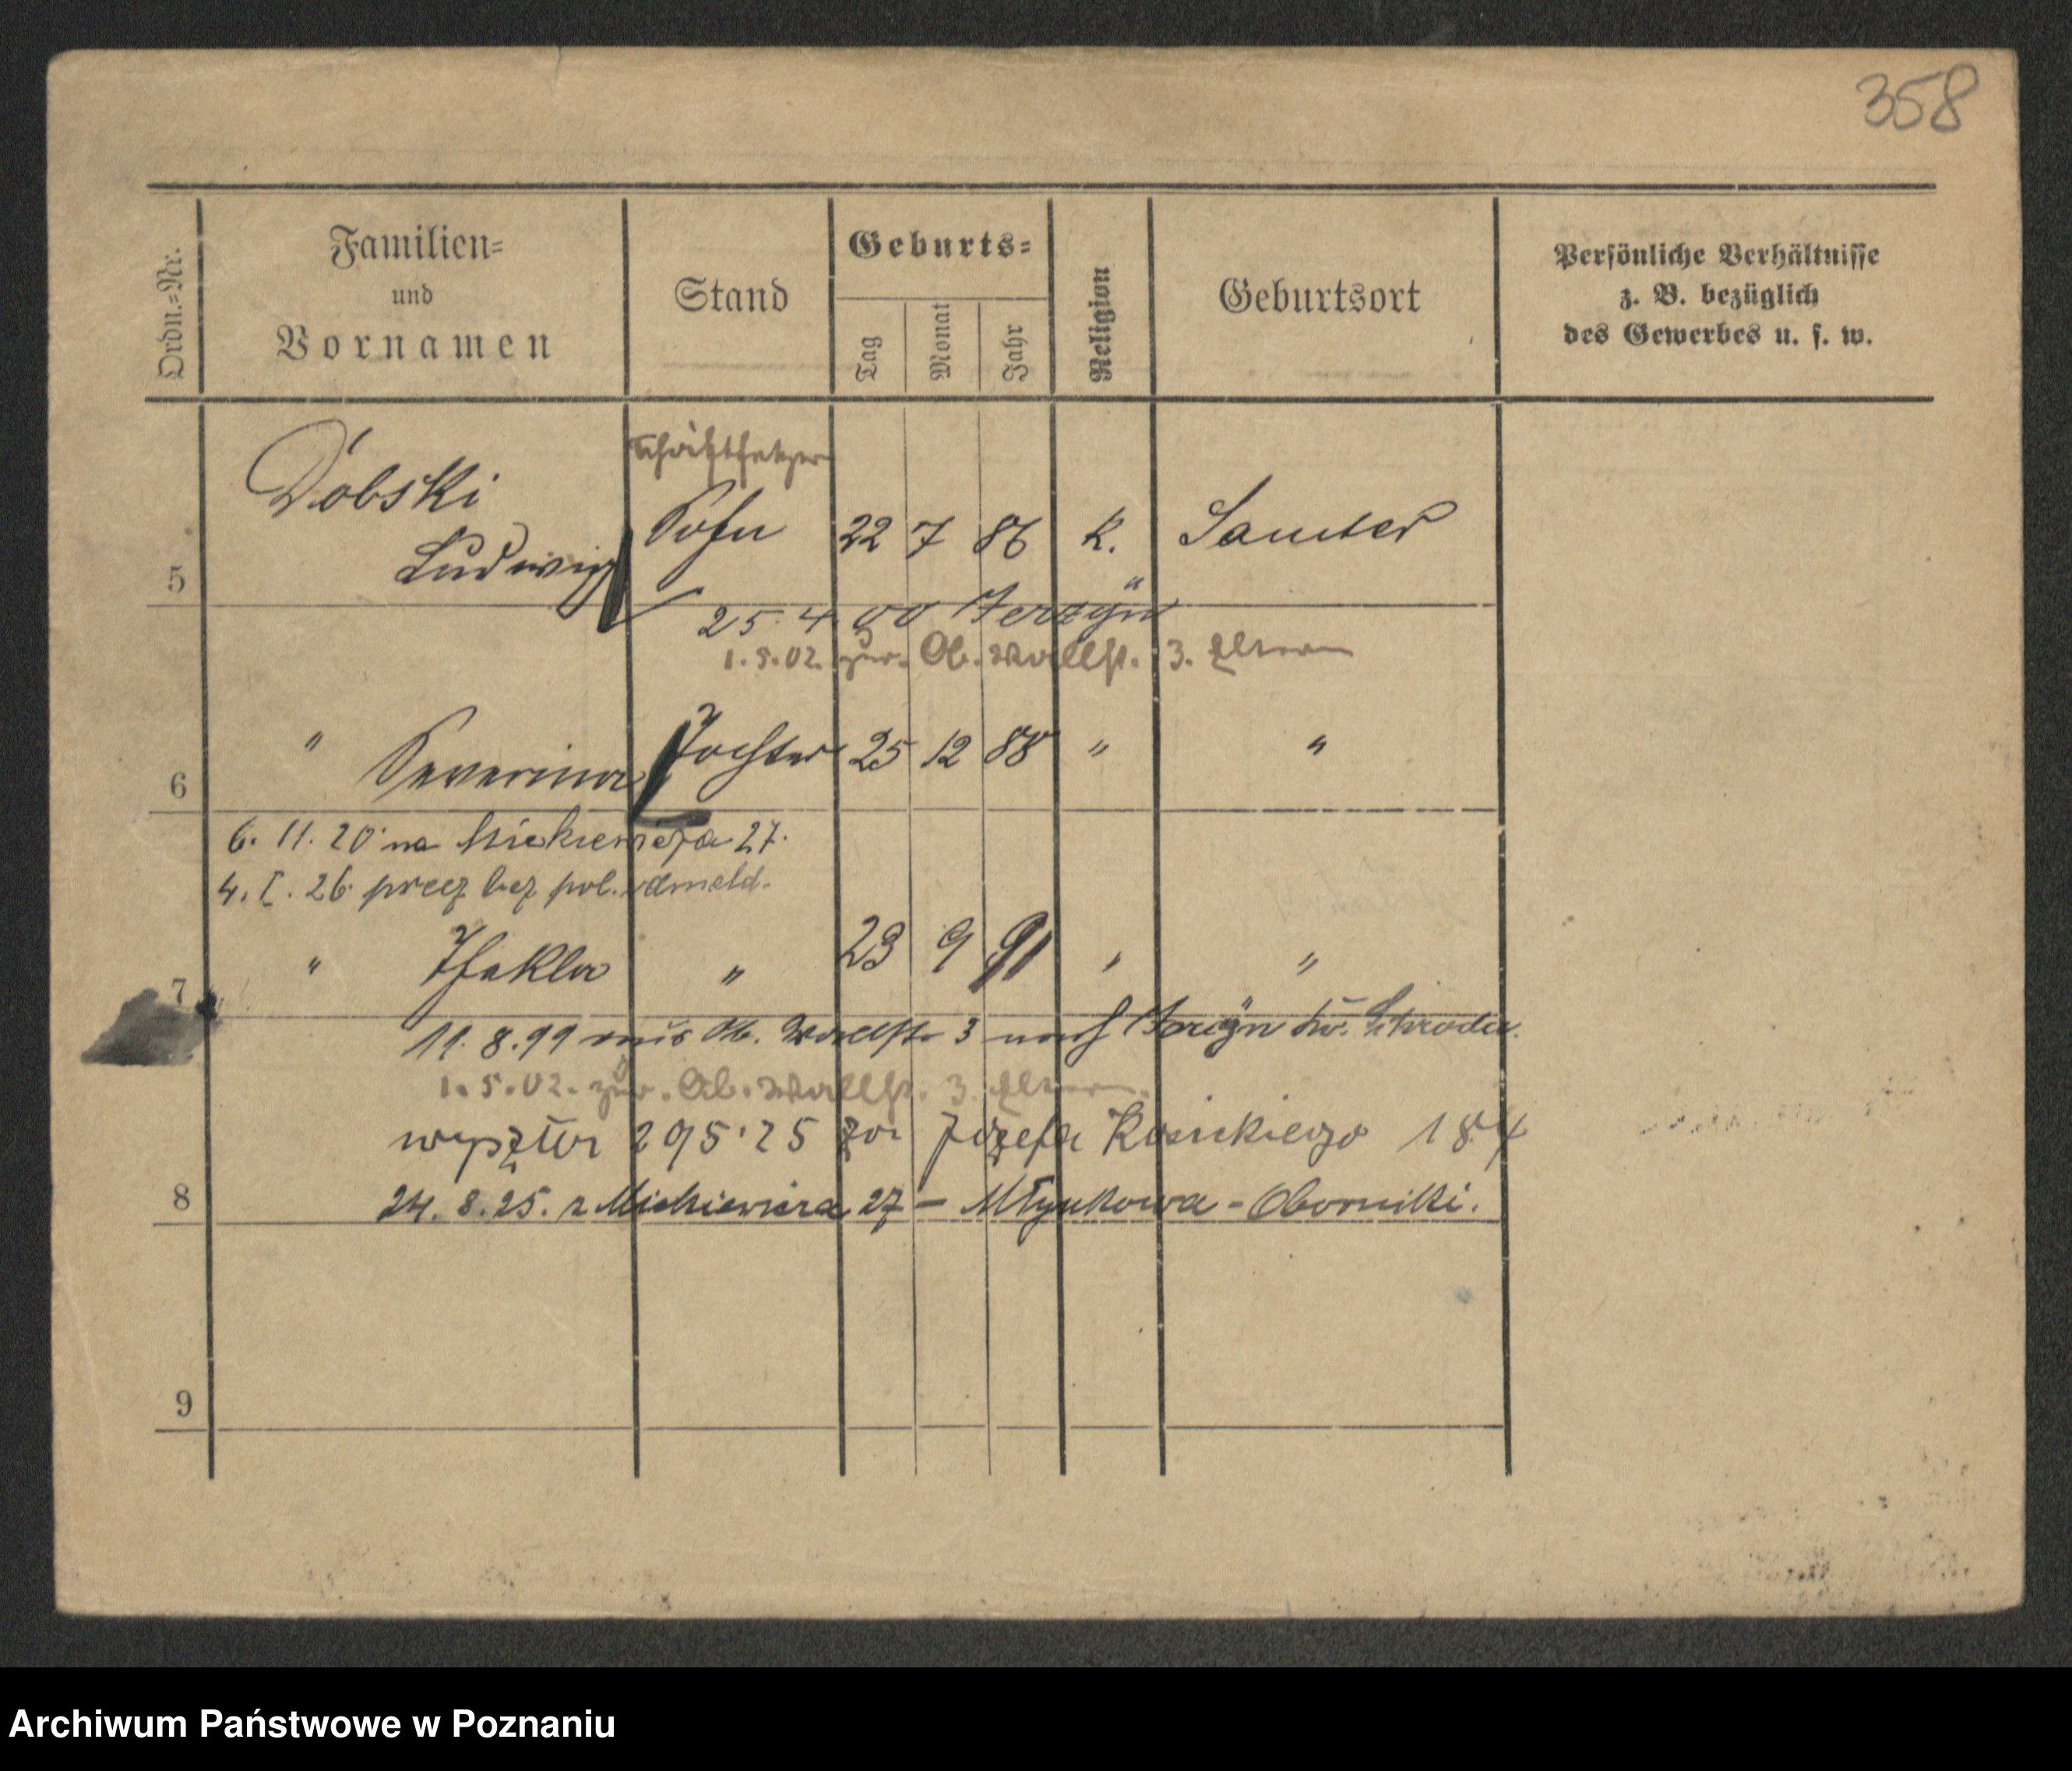 358
Ordn.-Nr.
Familien-
und
Vornamen
Stand
Geburts-
Tag
Monat
Jahr
Religion
Geburtsort
Persönliche Verhältnisse
z. B. bezüglich
des Gewerbes u. s. w.
Schriftsetzer
Dobski
Ludwig Sohn 22 7 86 k. Samter
5
25. 4 00
1.5.02. zur. Ob. Wallst. 3. Eltern
6 " Severina Tochter 25 12 88 " "
6. 11. 20 na Mickiewicza 27.
4. I. 26 precz bez pol. odmeld.
7 " Thekla " 23 9 91 " "
11. 8. 99 aus Ob. Wallstr 3 nach
1. 5. 02. zur. Ob. Wallst. 3. Eltern.
25 za Józefa 184
8 24. 8. 25. z Mickiewicza 27 - Młynkowa - Oborniki.
9
Archiwum Państwowe w Poznaniu